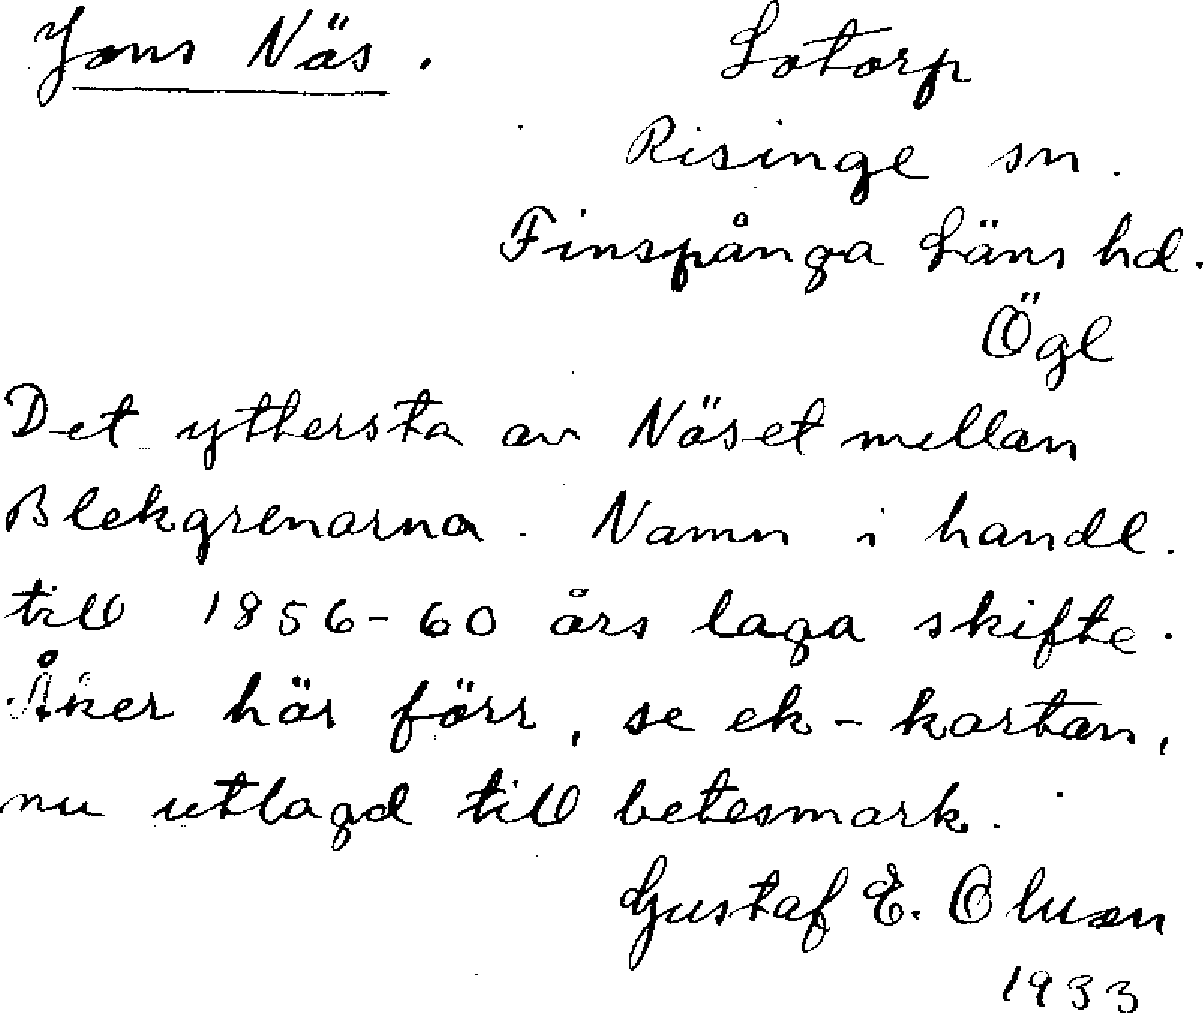 Jons Näs. Lotorp
Risinge sn.
Finspånga Läns hd.
Ögl
Det yttersta av Näset mellan
Blekgrenarna. Namn i handl.
till 1856-60 års laga skifte.
Åker här förr, se ek-kartan,
nu utlagd till betesmark.
Gustaf E. Olsson
1933